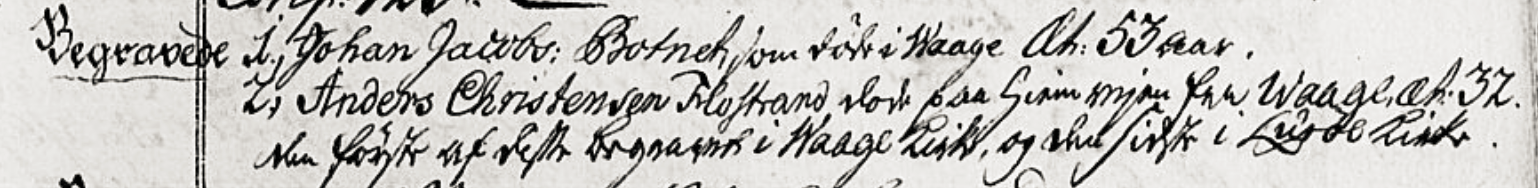 Begravede 1, Johan Jacobs: Botnet, som døde i Waage Æt: 53 aar.
2, Anders Christensen Flostrand, døde paa Hiemvejen fra Waage, æt: 32.
den første af disse begravet i Waage Kirke, og den sidste i Kirke.